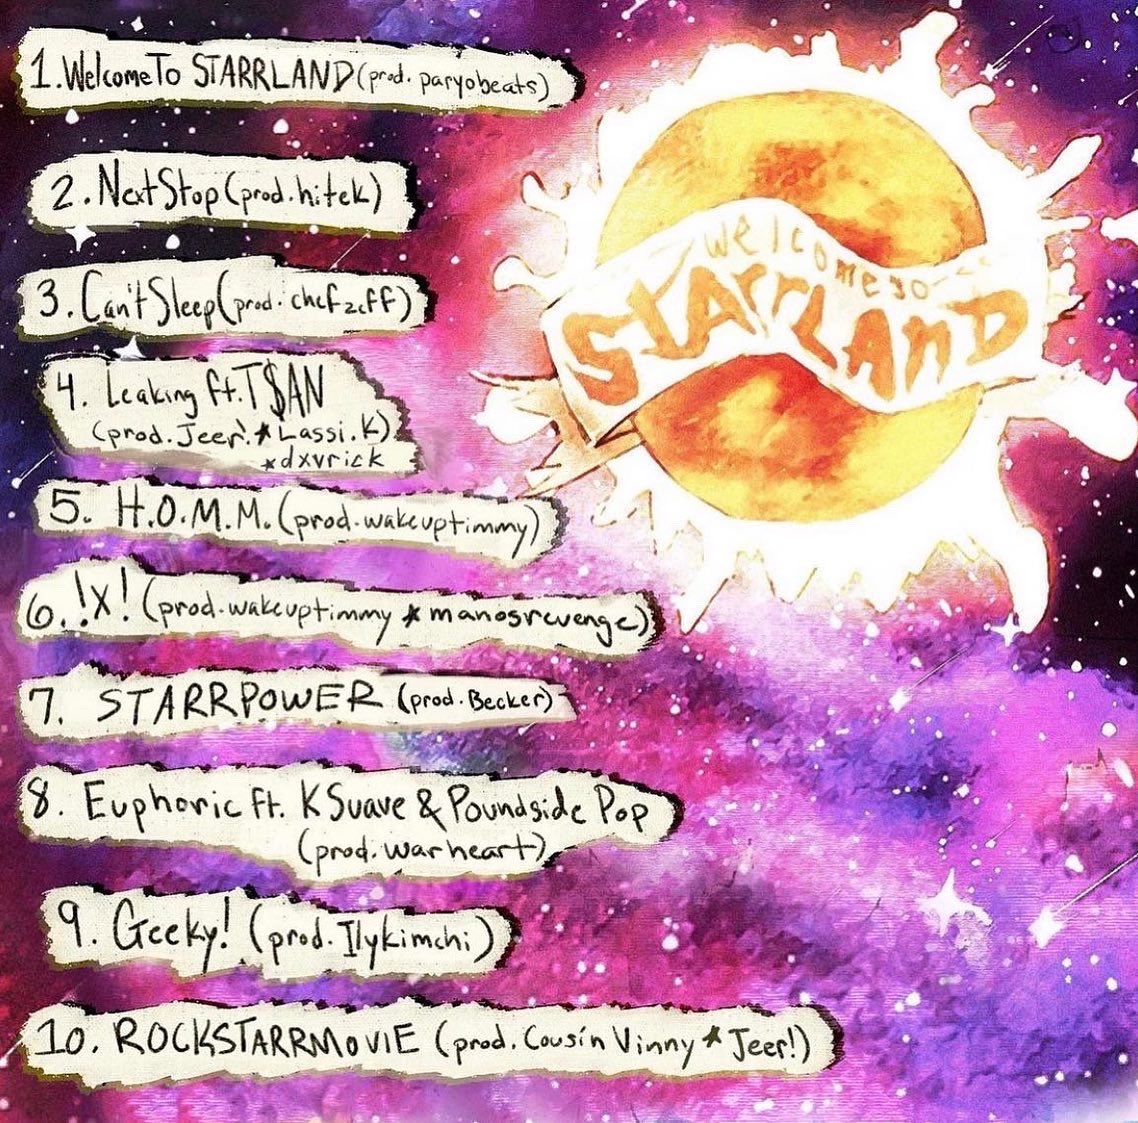 1. Welcome To STARRLAND (prod. paryobeats)
2. Next Stop (prod. hitek)
3. Can't Sleep (prod. chefzeff)
4. Leaking ft. T$AN
(prod. Jeer! * Lassi.K)
* dxvrick
5. H.O.M.M. (prod. wakeuptimmy)
6. !X! (prod. wakeuptimmy * manosrevenge)
7. STARRPOWER (prod. Becker)
8. Euphoric ft. K Suave & Poundside Pop
(prod. warheart)
9. Geeky! (prod. Ilykimchi)
10. ROCKSTARRMOVIE (prod. Cousin Vinny * Jeer!)
Welcome
STARRLAND